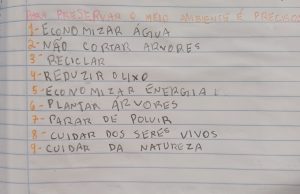 PARA PRESERVAR O MEIO AMBIENTE É PRECISO
1-ECONOMIZAR ÁGUA
2-NÃO CORTAR ARVORES
3-RECICLAR
4-REDUZIR O LIXO
5-ECONOMIZAR ENERGIA
6-PLANTAR ÁRVORES
7-PARAR DE POLUIR
8-CUIDAR DOS SERES VIVOS
9-CUIDAR DA NATUREZA